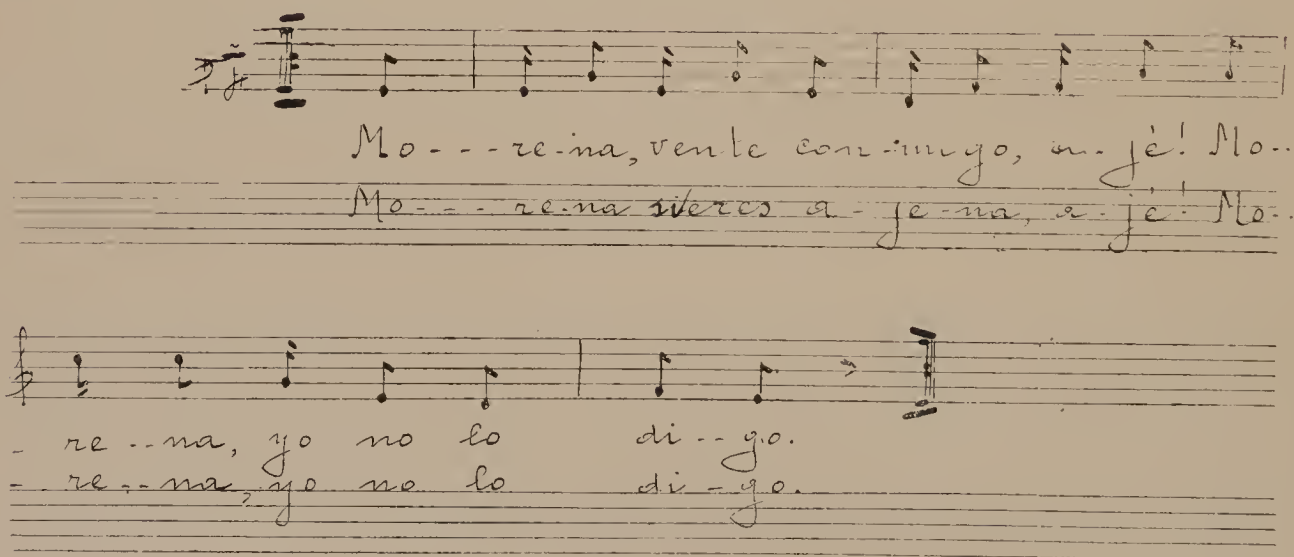 Mo---re-na, vente con-migo, a-jé! Mo--
Mo--- re-na si eres a-je-na, a-jé! Mo-
- re--na, yo no lo di--go.
- re--na, yo no lo di-go.